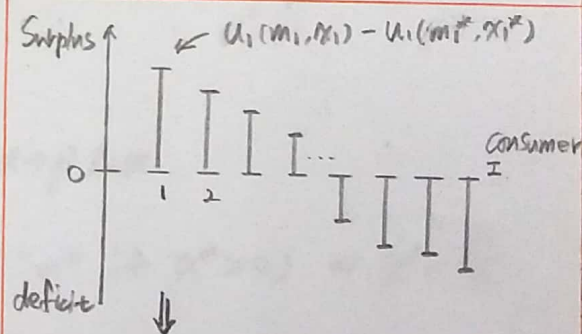 Surplus
u₁(m₁, x₁) − u₁(m₁*, x₁*)
Consumer
I
...
0
1 2
deficit